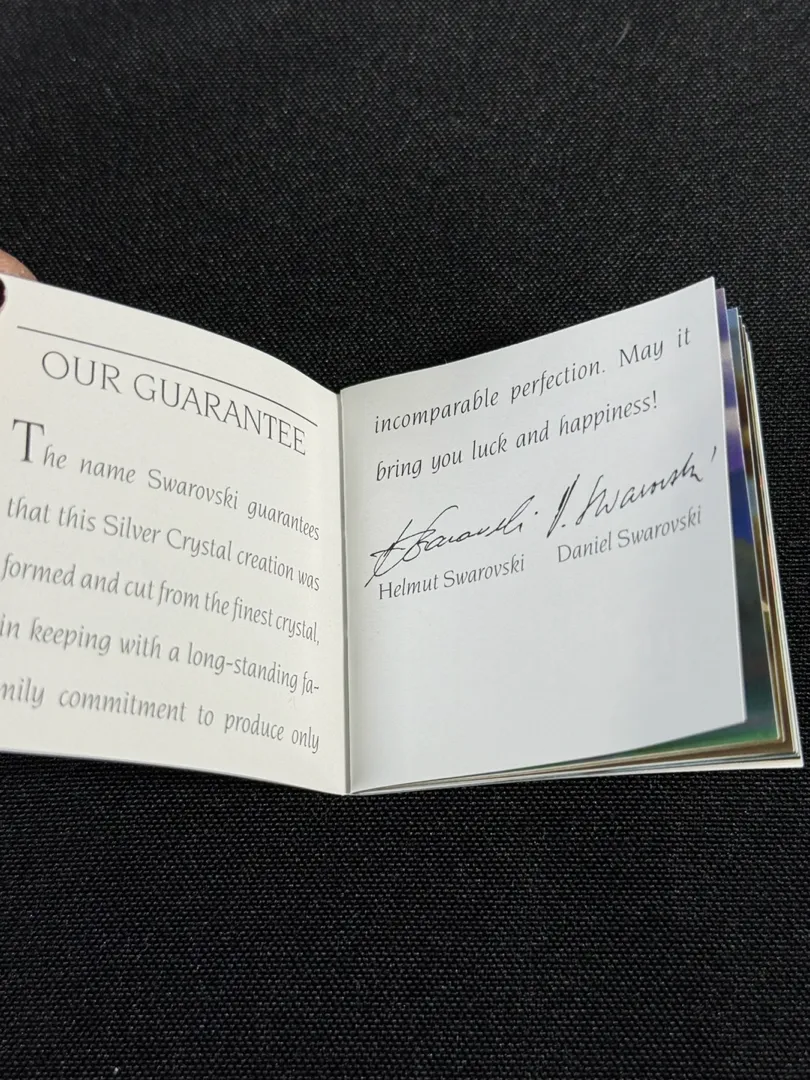 OUR GUARANTEE
The name Swarovski guarantees
that this Silver Crystal creation was
formed and cut from the finest crystal,
in keeping with a long-standing fa-
mily commitment to produce only
incomparable perfection. May it
bring you luck and happiness!
Swarovski D. Swarovski
Helmut Swarovski Daniel Swarovski